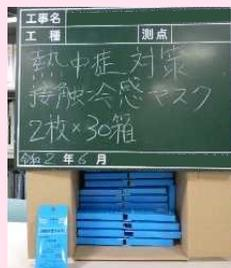 工事名
工種 測点
熱中症 対策
接触冷感マスク
2枚×30箱
令和2年6月